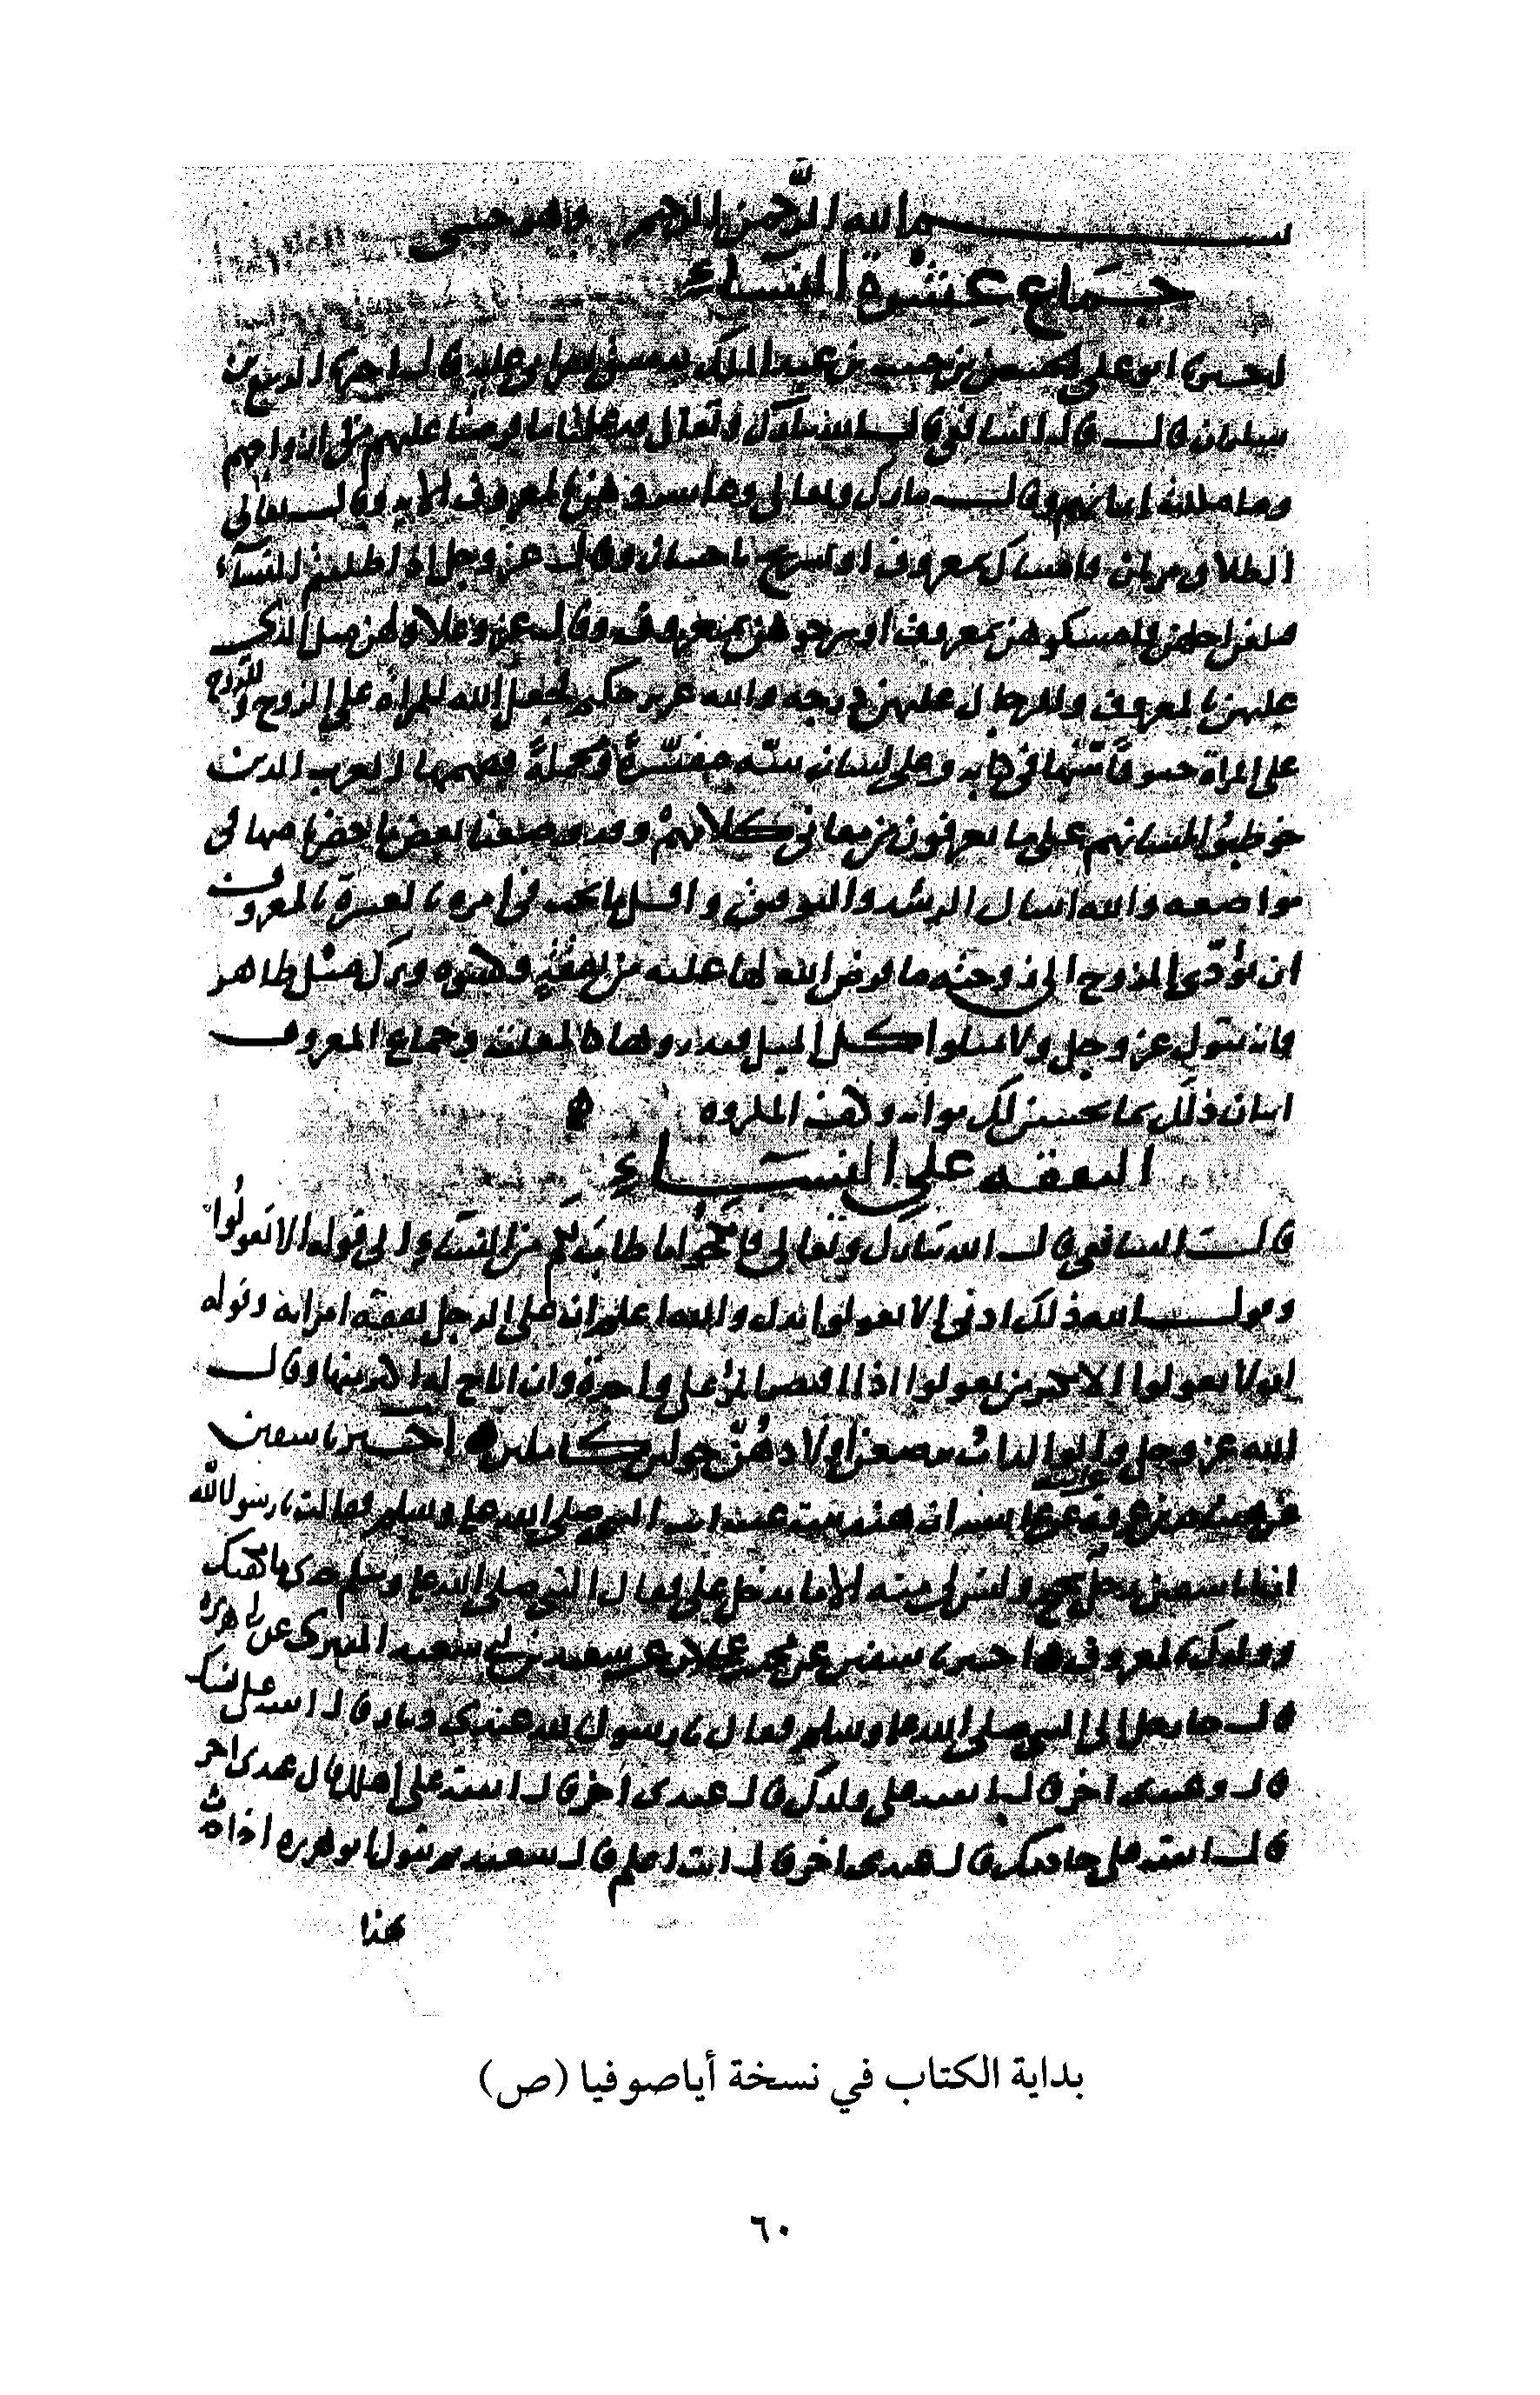 بسم الله الرحمن الرحيم وهو حسبي
جماع عشرة النساء
ابو على الحسن بن حبيب بن عبد الملك بدمشق قراه عليه قال الربيع بن
سليمان قال قال الشافعي قال الله تبارك وتعالى قد علمنا ما فرضنا عليهم في ازواجهم
وما ملكت ايمانهم وقال تبارك وتعالى وعاشروهن بالمعروف الايه وقال تعالى
الطلاق مرتان فامساك بمعروف او تسريح باحسان وقال عز وجل اذا طلقتم النساء
فبلغن اجلهن فامسكوهن بمعروف او سرحوهن بمعروف وقال عز وعلا ولهن مثل الذي
عليهن بالمعروف وللرجال عليهن درجه والله عزيز حكيم فجعل الله للمراة على الزوج وللزوج
على المراة حقوقا بينها في كتابه وعلى لسان نبيه مفسرة ومجملة ففهمها العرب الذين
خوطبوا بلسانهم على ما يعرفون من معاني كلامهم وقد وضعنا بعض ما حضرنا منها في
مواضعه والله اسال الرشد والتوفيق واقل ما يجب في امره بالعشرة بالمعروف
ان يؤدي الزوج الى زوجته ما فرض الله لها عليه من نفقة وكسوه وترك ميل ظاهر
فانه يقول عز وجل ولا تميلوا كل الميل فتذروها كالمعلقة وجماع المعروف
اتيان ذلك بما يحسن لك ثوابه وكف المكروه
النفقه على النساء
قال الشافعي قال الله تبارك وتعالى فانكحوا ما طاب لكم من النساء الى قوله الا تعولوا
وقول الله ذلك ادنى الا تعولوا يدل والله اعلم ان على الرجل نفقه امراته وقوله
الا تعولوا الا يكثر من تعولوا اذا اقتصر المرء على واحدة وان اباح له اكثر منها وقال
الله عز وجل والوالدات يرضعن اولادهن حولين كاملين اخبرنا سفين
عن هشام بن عروة عن عايشه ان هند بنت عتبه اتت النبي صلى الله عليه وسلم فقالت يا رسول الله
ان ابا سفين رجل شحيح وليس لي منه الا ما يدخل علي فقال النبي صلى الله عليه وسلم خذي ما يكفيك
وولدك بالمعروف اخبرنا سفين عن محمد بن عجلان عن سعيد بن ابي سعيد المقبري عن ابي هريرة
قال جا رجل الى النبي صلى الله عليه وسلم فقال يا رسول الله عندي دينار قال انفقه على نفسك
قال عندي اخر قال انفقه على ولدك قال عندي اخر قال انفقه على اهلك قال عندي اخر
قال انفقه على خادمك قال عندي اخر قال انت اعلم قال سعيد ثم يقول ابو هريره اذا حدث
هذا
بداية الكتاب في نسخة أياصوفيا (ص)
٦٠